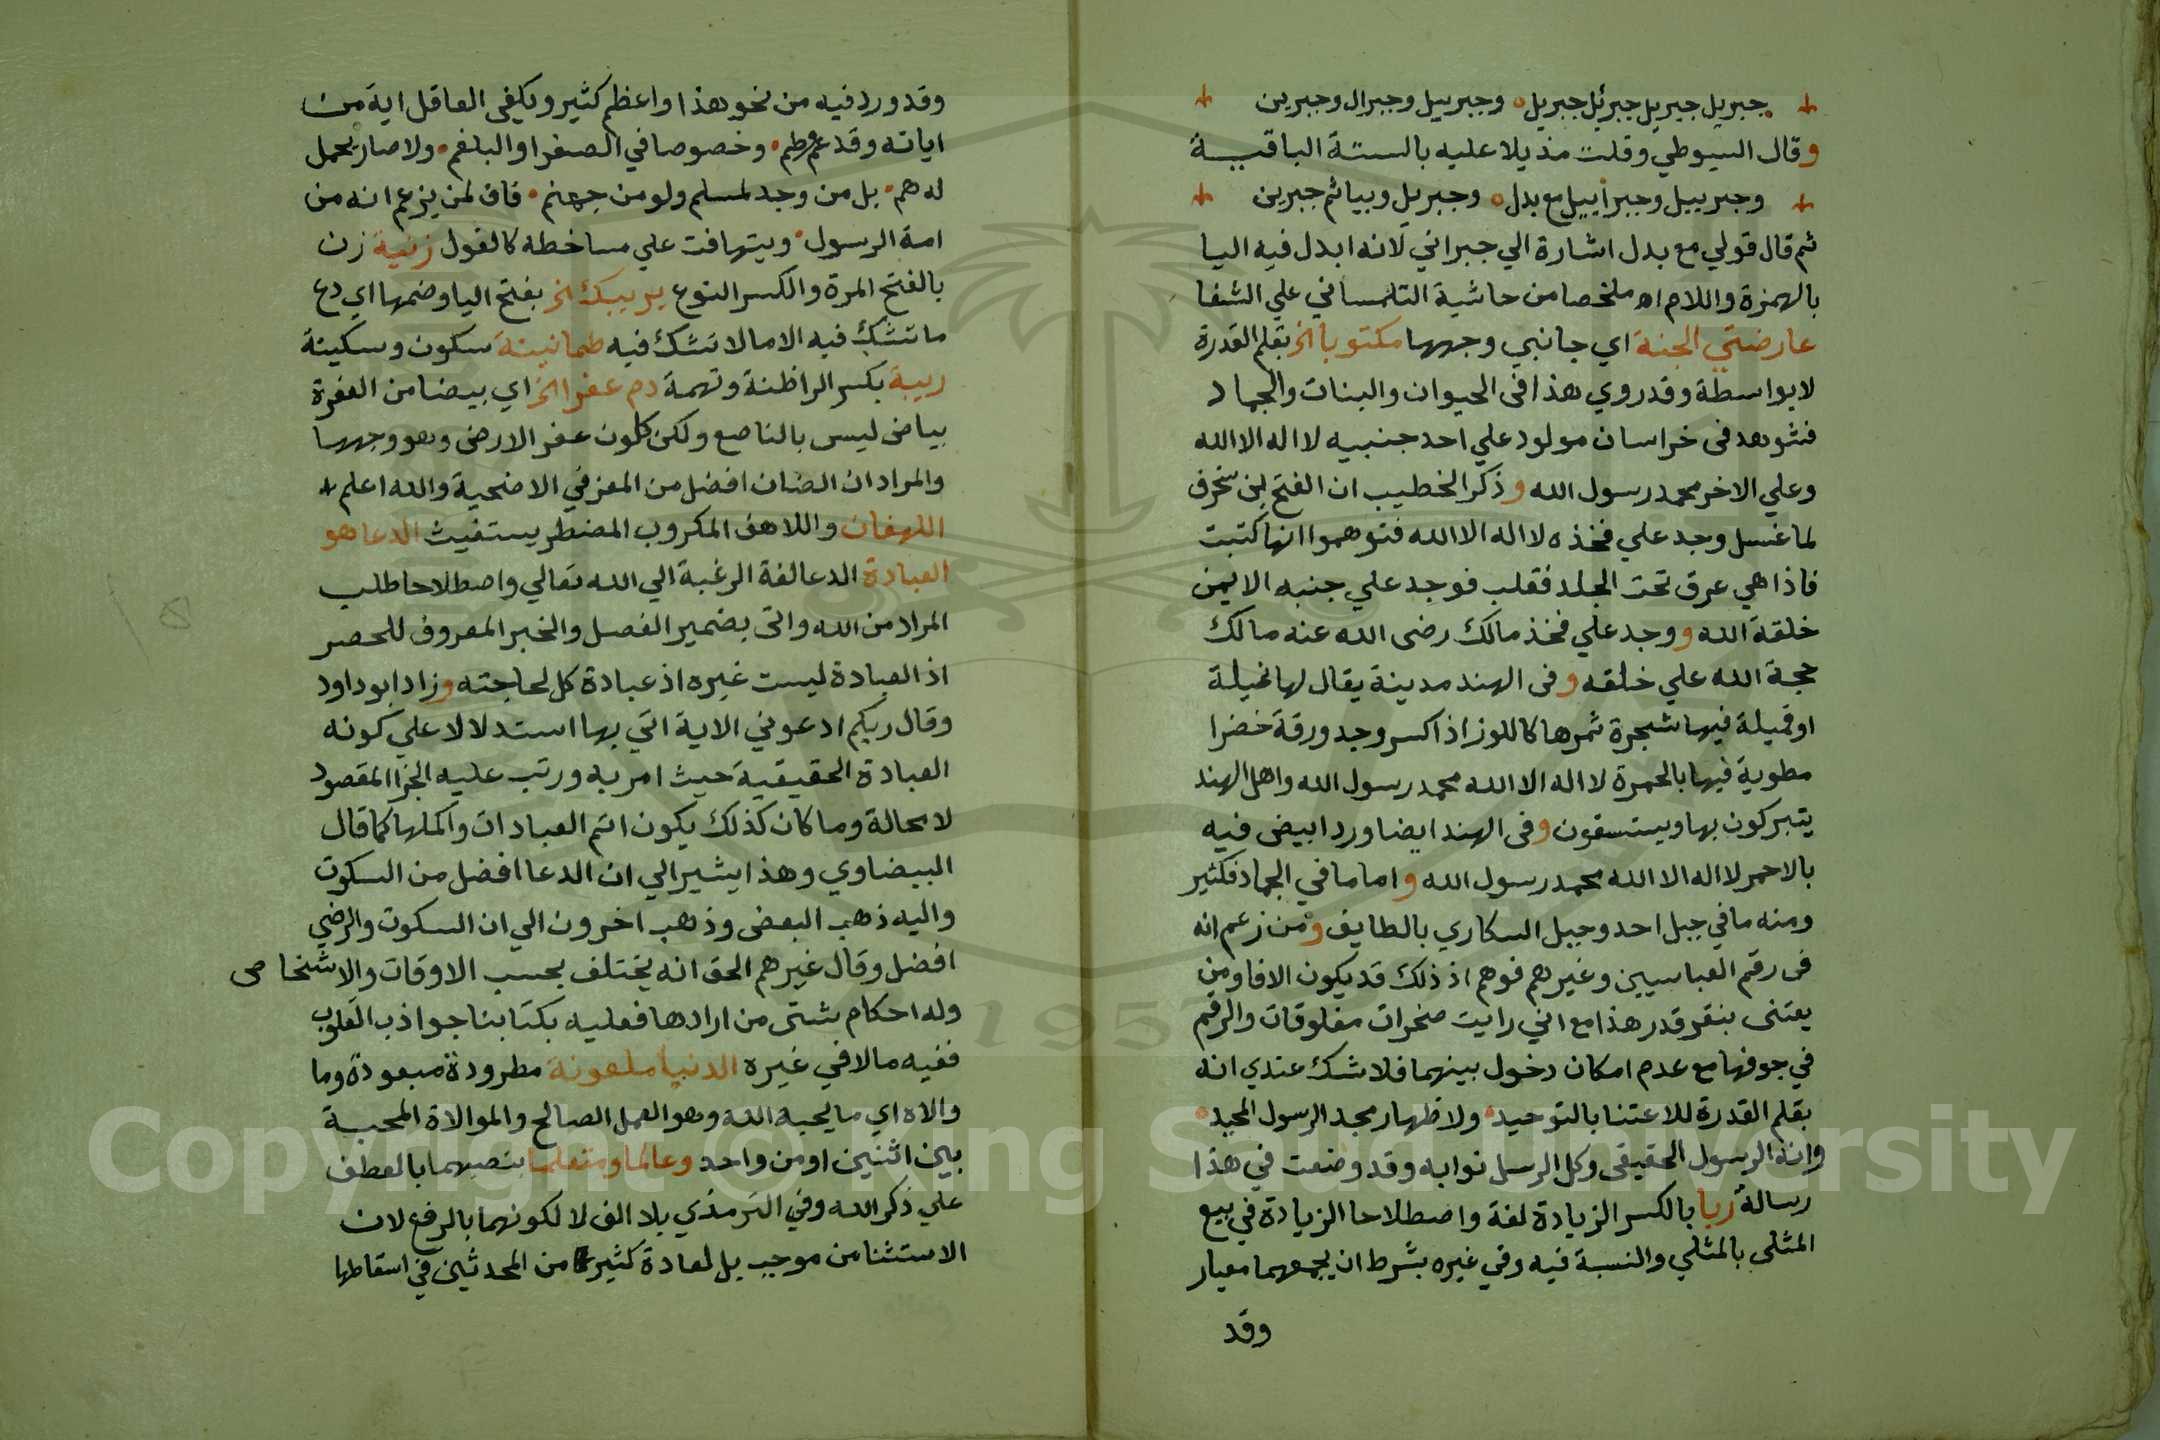 جبريل جبريل جبرئل جبريل وجبرييل وجبرال وجبرين
وقال السيوطي وقلت مذيلا عليه بالستة الباقية
وجبرييل وجبرأييل مع بدل وجبريل وبيا ثم جبرين
ثم قال قولي مع بدل اشارة الي جبراني لانه ابدل فيه اليا
بالهمزة واللام اه ملخصا من حاشية التلمساني علي الشفا
عارضتي الجنة اي جانبي وجهها مكتوبا الخ بقلم القدرة
لا بواسطة وقد روي هذا في الحيوان والنبات والجماد
فشوهد في خراسان مولود علي احد جنبيه لا اله الا الله
وعلي الاخر محمد رسول الله وذكر الخطيب ان الفتح بن شخرف
لما غسل وجد علي فخذه لا اله الا الله فتوهموا انها كتبت
فاذا هي عرق تحت الجلد فقلب فوجد علي جنبه الايمن
خلقة الله ووجد علي فخذ مالك رضي الله عنه مالك
حجة الله علي خلقه وفي الهند مدينة يقال لها نميلة
او قميلة فيها شجرة ثمرها كاللوز اذا كسر وجد ورقة خضرا
مطوية فيها بالحمرة لا اله الا الله محمد رسول الله واهل الهند
يتبركون بها ويستسقون وفي الهند ايضا ورد ابيض فيه
بالاحمر لا اله الا الله محمد رسول الله واما ما في الجماد فكثير
ومنه ما في جبل احد وجبل السكاري بالطايف ومن زعم انه
في رقم العباسيين وغيرهم فوهم اذ ذلك قد يكون الافا ومن
يعتني بنقر قدر هذا مع اني رايت صخرات مفلوقات والرقم
في جوفها مع عدم امكان دخول بينهما فلا شك عندي انه
بقلم القدرة للاعتنا بالتوحيد ولاظهار مجد الرسول المجيد
وانه الرسول الحقيقي وكل الرسل نوابه وقد وضعت في هذا
رسالة ربا بالكسر الزيادة لغة واصطلاحا الزيادة في بيع
المثلي بالمثلي والنسبة فيه وفي غيره بشرط ان يجمعهما معيار
وقد
وقد ورد فيه من نحو هذا واعظم كثير ويكفي العاقل اية من
اياته وقد عم وطم وخصوصا في الصفرا والبلغم ولا صار يحمل
له هم بل من وجد لمسلم ولو من جهنم فاف لمن يزعم انه من
امة الرسول ويتهافت علي مساخطه كالغول زنية زن
بالفتح المرة والكسر النوع يريبك الخ بفتح اليا وضمها اي دع
ما تشك فيه الا ما لا تشك فيه طمانينة سكون وسكينة
ريبة بكسر الرا ظنة وتهمة دم عفرا الخ اي بيضا من العفرة
بياض ليس بالناصع ولكن كلون عفر الارض وهو وجهها
والمراد ان الضان افضل من المعز في الاضحية والله اعلم
اللهفان واللاهف المكروب المضطر يستغيث الدعا هو
العبادة الدعا لغة الرغبة الي الله تعالي واصطلاحا طلب
المراد من الله واتي بضمير الفصل والخبر المعروف للحصر
اذ العبادة ليست غيره اذ عبادة كل لحاجته وزاد ابو داود
وقال ربكم ادعوني الاية اتي بها استدلالا علي كونه
العبادة الحقيقية حيث امر به ورتب عليه الجزا المقصود
لا محالة وما كان كذلك يكون اتم العبادات واكملها كما قال
البيضاوي وهذا يشير الي ان الدعا افضل من السكوت
واليه ذهب البعض وذهب اخرون الي ان السكوت والرضي
افضل وقال غيرهم الحق انه يختلف بحسب الاوقات والاشخاص
وله احكام شتي من ارادها فعليه بكتابنا جواذب القلوب
ففيه ما لا في غيره الدنيا ملعونة مطرودة مبعودة وما
والاه اي ما يحبه الله وهو العمل الصالح والموالاة المحبة
بين اثنين او من واحد وعالما ومتعلما بنصبهما بالعطف
علي ذكر الله وفي الترمذي بلا الف لا لكونهما بالرفع لان
الاستثنا من موجب بل لعادة كثير من المحدثين في اسقاطها
Copyright © King Saud University
1957